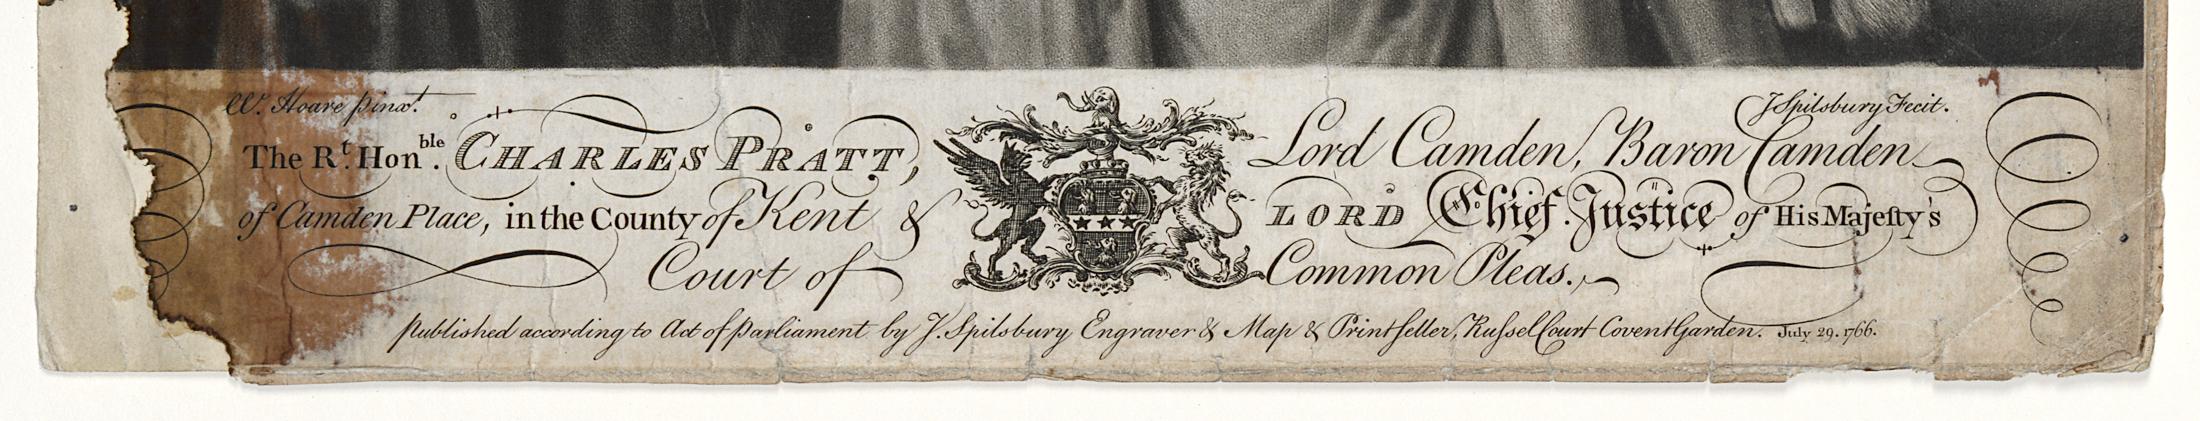 W. Hoare pinxt. J Spilsbury Fecit.
The Rt. Honble. CHARLES PRATT, Lord Camden, Baron Camden
of Camden Place, in the County of Kent & LORD Chief Justice of His Majeſty's
Court of Common Pleas.
Published according to Act of Parliament by J. Spilsbury Engraver & Map & Printſeller, Ruſsel Court Covent Garden. July 29. 1766.